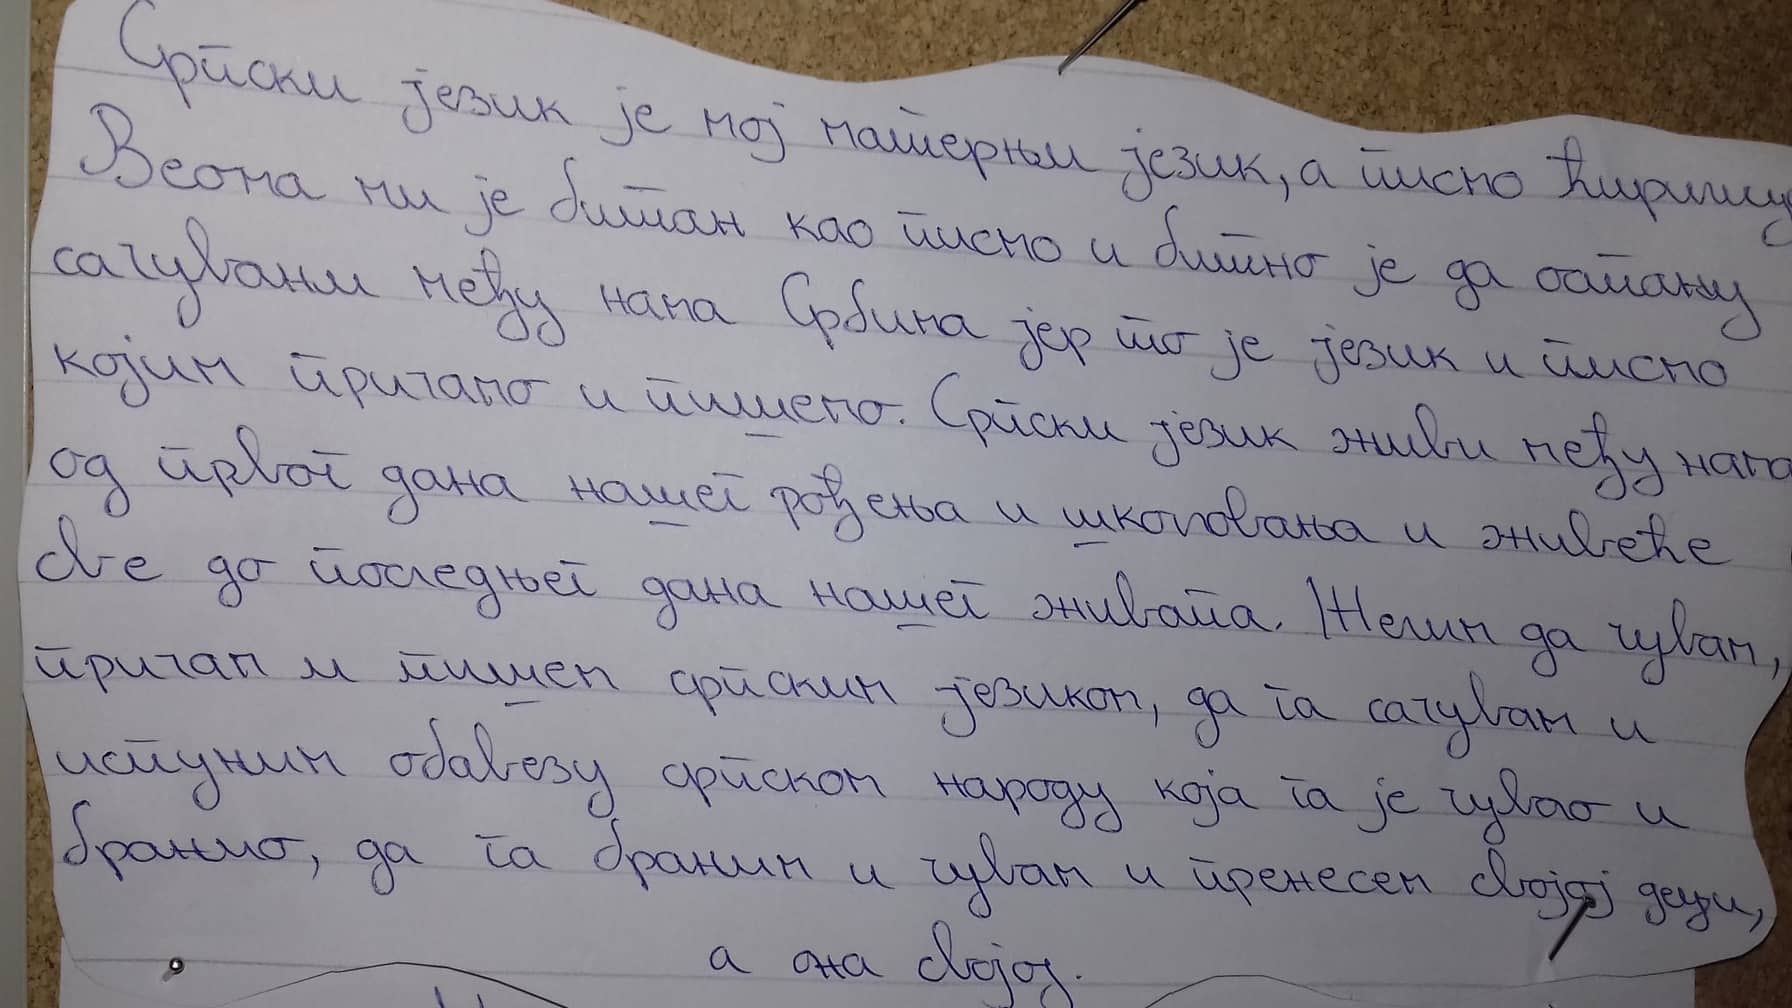 Српски језик је мој матерњи језик, а писмо ћирилица
Веома ми је битан као писмо и битно је да остану
сачувани међу нама Србима јер то је језик и писмо
којим причамо и пишемо. Српски језик живи међу нама
од првог дана нашег рођења и школовања и живеће
све до последњег дана нашег живота. Желим да чувам,
причам и пишем српским језиком, да га сачувам и
испуним обавезу српском народу која га је чувао и
бранио, да га браним и чувам и пренесем својој деци,
а она својој.